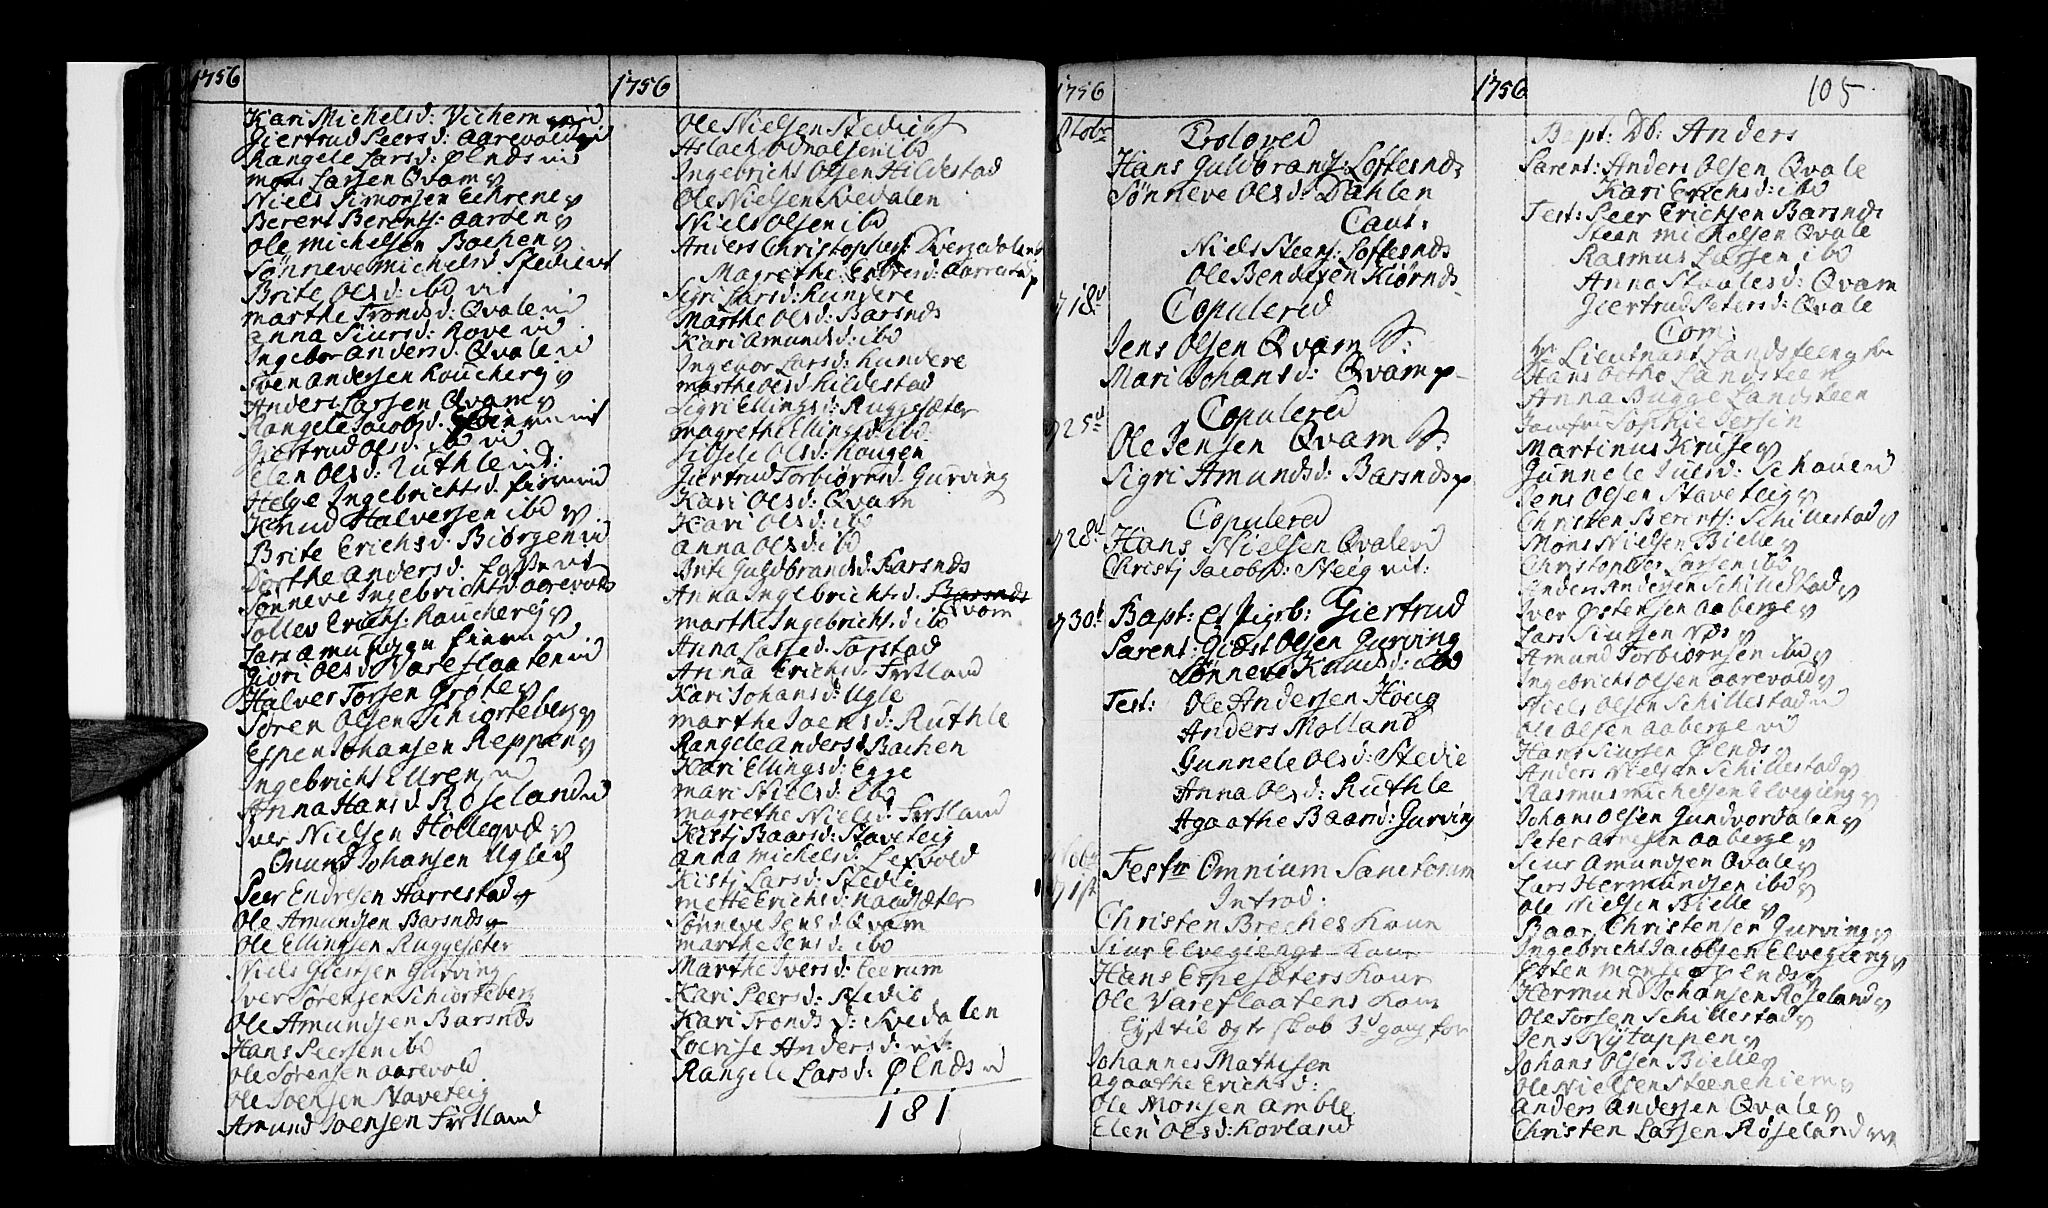 1756
Kari Michelsd: Vichem
Giertrud Peers d: Aarevold
Rangele Lars d: Ølnds vid
Mons Larsen Qvam
Niels Simonsen Eehrene
Berent Berents: Aarøen
Ole Michelsen Bachen
Sønneve Michels d. Stedie
Brite Ols d: ibd
Marthe Tronds d: Qvale
Anna Siurs d: Rove
Ingebor Anders d. Qvale
Sven Andersen Rouceberg
Anders Larsen Qvam
Rangele Jacobs d.
Giertrud Ols d: ibd
Elen Ols d: Ruthle
Helge Ingebrichts d.
Knud Halversen ibd
Brite Erichs d: Biørgen
Dorthe Anders d:
Sønneve Ingebrichts d Aarevold
Tolles Erichs: Roucheberg
Lars Amundsen
Giøri Ols d Vareflaaten
Halver Torsen Grøte
Søren Olsen Schiorteberg
Espen Johansen Reppen
Ingebricht Ellrens
Anna Hans d Røseland
Iver Nielsen Hollegvd
Omund Johansen Ugle
Peer Endresen Harrestad
Ole Amundsen Barsnds
Ole Ellingsen Ruggesæter
Niels Giestsen Gurving
Iver Sørensen Schiorteberg
Ole Amundsen Barsnds
Hans Peersen ibd
Ole Sørensen Aarevold
Ole Joensen Staveteig
Amund Joensen Frstland
1756
Ole Nielsen Stedie
Aslach Odmalsen ibd
Ingebricht Olsen Hildestad
Ole Nielsen Svedalen
Niels Olsen ibd
Anders Christophers:
Magrethe Endres d: Aarrestad
Sigri Lars d: Hundere
Marthe Ols d: Barsnds
Kari Amunds d: ibd
Ingebor Lars d: Hundere
Marthe Ols d Hildestad
Sigri Ellings d: Ruggesæter
Magrethe Ellings d ibd
Sibsele Ols d: Haugen
Giertrud Torbiørns d Gurving
Kari Ols d: Qvam
Kari Ols d: ibd
Anna Ols d: ibd
Brite Guldbrands d Barsnds
Anna Ingebrichts d. Barsnds
Qvam
Marthe Ingebrichts d ibd
Anna Lasse d: Torstad
Anna Erichs d. Frstland
Kari Johans d: Ugle
Marthe Joens d: Ruthle
Rangele Anders d Bachen
Kari Ellings d: Egge
Mari Niels d: ibd
Magrethe Niels d. Frstland
Kisti Baars d: Staveteig
Anna Michels d: Lefvold
Kisti Lars d: Stedie
Mette Erichs d: Haugsæter
Sønneve Jens d: Qvam
Marthe Jens d: ibd
Marthe Ivers d: Leerum
Kari Peers d: Stedie
Kari Tronds d: Svedalen
Lovise Anders d: vid:
Rangele Lars d: Ølnds
181
1756
8tobr
Troloved
Hans Guldbrands: Loftesnds
Sønneve Ols d: Dahlen
Caut:
Niels Steens: Loftesnds
Ole Bendixen Kiørnds
18d
Copulered
Jens Olsen Qvam S:
Mari Johans d: Qvam p
25d
Copulered
Ole Jensen Qvam S:
Sigri Amunds d: Barsnds p
28d
Copulered
Hans Nielsen Qvale
Christj Jacobs d: Steeg vit:
30d
Bapt: Et Pigeb: Giertrud
Parent: Giest Olsen Gurving
Sønneve Knuds d: ibd
Test: Ole Andersen Houg
Anders Molland
Gunnele Ols d: Stedie
Anna Ols d: Ruthle
Agaathe Baard: Gurving
1ste
Festu Omnium Sanctorum
Introd:
Christen Breches Kone
Siur Elvegiengs Kone
Hans Espesæters Kone
Ole Vareflaatens Kone
Lyst til Egte skab 3d gang for
Johannes Mathisen
Agaathe Erichs d:
Ole Monsen Amble
Elen Ols d: Hovland
1756
105
Bapt: Db: Anders
Parent: Anders Olsen Qvale
Kari Erichs d: ibd
Test: Peer Erichsen Barsnds
Steen Michelsen Qvale
Rasmus Larsen ibd
Anna Staales d: Qvam
Giertrud Peters d: Qvale
Com:
Hr Lieutnant Landsteen
Hans Ottho Landsteen
Anna Bugge Landsteen
Jomfru Sophie Jersin
Martinus Kruse
Gunnele Juls d: Schouen
Jens Olsen Staveteig
Christen Berents: Schillestad
Mons Nielsen Bielle
Christopher Larsen ibd
Anders Andersen Schillestad
Iver Ostensen Aaberge
Lars Siursen Nds
Amund Torbiørnsen ibd
Ingebricht Olsen Aarevold
Niels Olsen Schillestad
Ole Olsen Aaberge
Hans Siursen Ølnds
Anders Nielsen Schillestad
Rasmus Michelsen Elvegieng
Johans Olsen Gundvordalen
Peter Arnesen Aaberge
Siur Amundsen Qvale
Lars Hermundsen ibd
Ole Nielsen Bielle
Baar Christensen Gurving
Ingebricht Jacobsen Elvegieng
Esten Monsen Ølnds
Hermund Johansen Røseland
Ole Torsen Schillestad
Jens Nytappen
Johans Olsen Bielle
Ole Nielsen Steenehiem
Anders Andersen Qvale
Christen Larsen Røseland